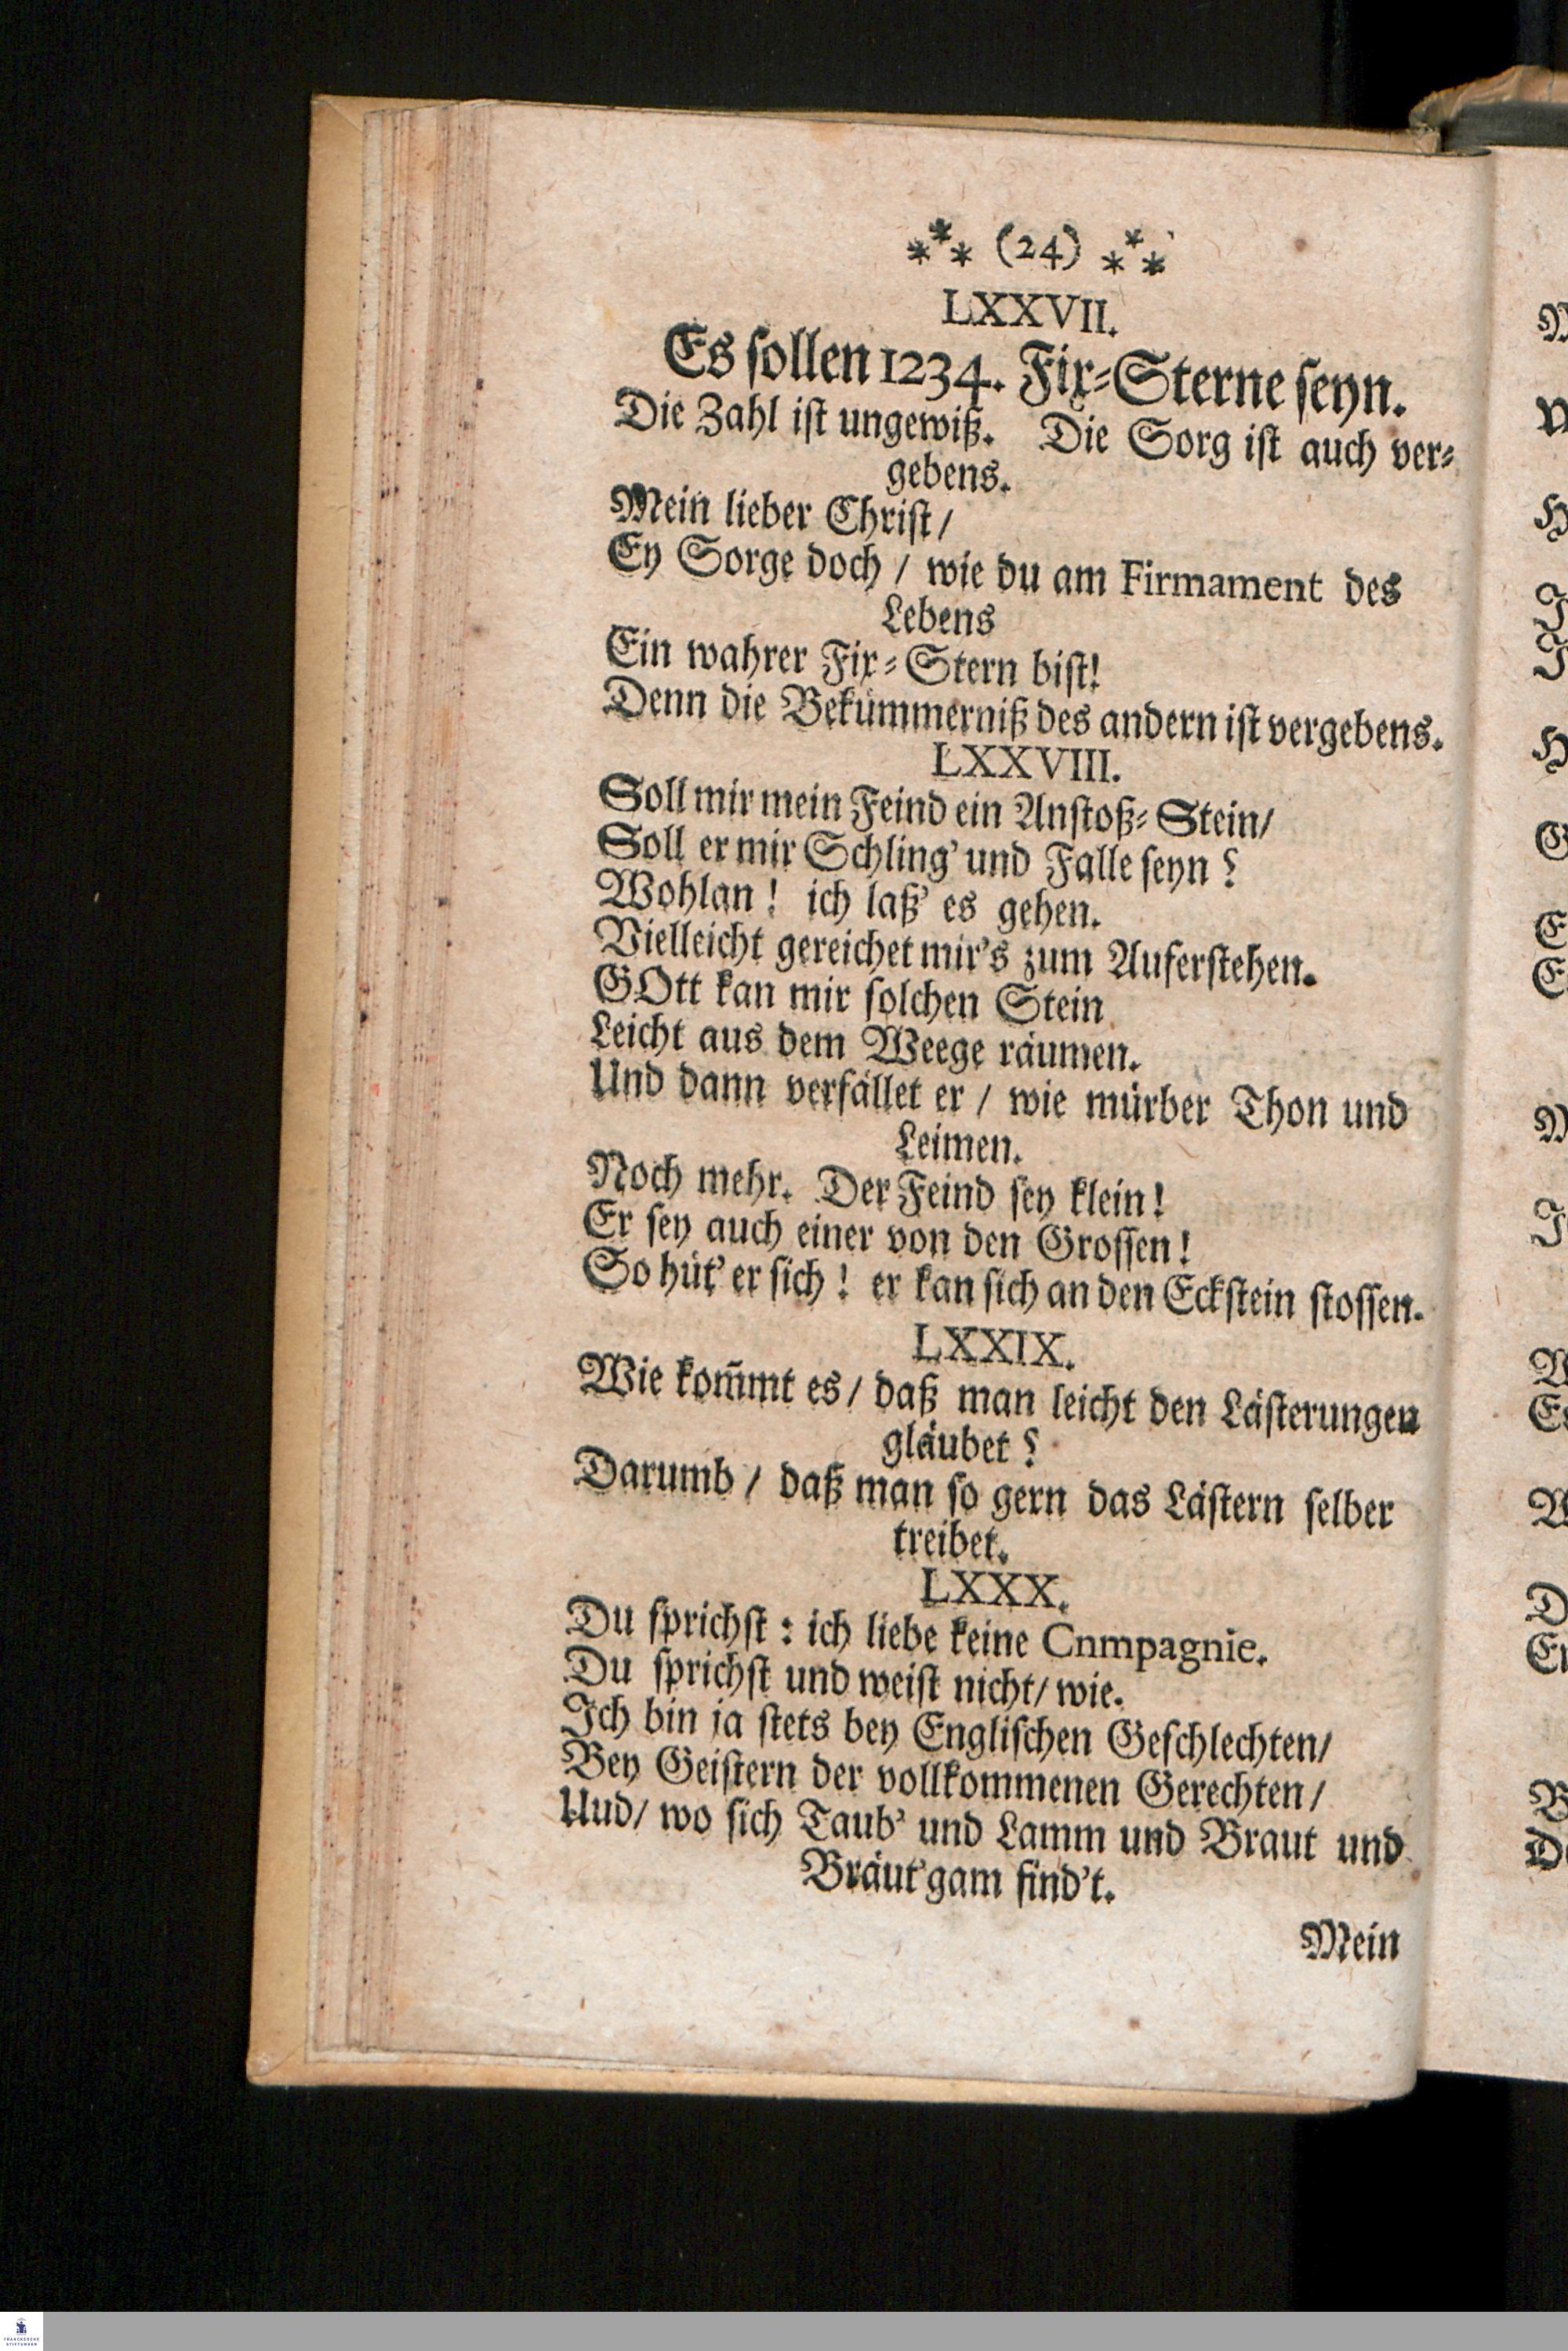 ⁂ (24) ⁂
LXXVII.
Es sollen 1234. Fix-Sterne seyn.
Die Zahl ist ungewiß. Die Sorg ist auch ver-
gebens.
Mein lieber Christ/
Ey Sorge doch / wie du am Firmament des
Lebens
Ein wahrer Fix-Stern bist!
Denn die Bekümmerniß des andern ist vergebens.
LXXVIII.
Soll mir mein Feind ein Anstoß-Stein/
Soll er mir Schling' und Falle seyn?
Wohlan! ich laß' es gehen.
Vielleicht gereichet mir's zum Auferstehen.
GOtt kan mir solchen Stein
Leicht aus dem Weege räumen.
Und dann verfället er / wie mürber Thon und
Leimen.
Noch mehr. Der Feind sey klein!
Er sey auch einer von den Grossen!
So hüt' er sich! er kan sich an den Eckstein stossen.
LXXIX.
Wie kom̃mt es/ daß man leicht den Lästerungen
gläubet?
Darumb / daß man so gern das Lästern selber
treibet.
LXXX.
Du sprichst: ich liebe keine Cnmpagnie.
Du sprichst und weist nicht/ wie.
Ich bin ja stets bey Englischen Geschlechten/
Bey Geistern der vollkommenen Gerechten/
Uud/ wo sich Taub' und Lamm und Braut und
Bräut'gam find't.
Mein
FRANCKESCHE
STIFTUNGEN